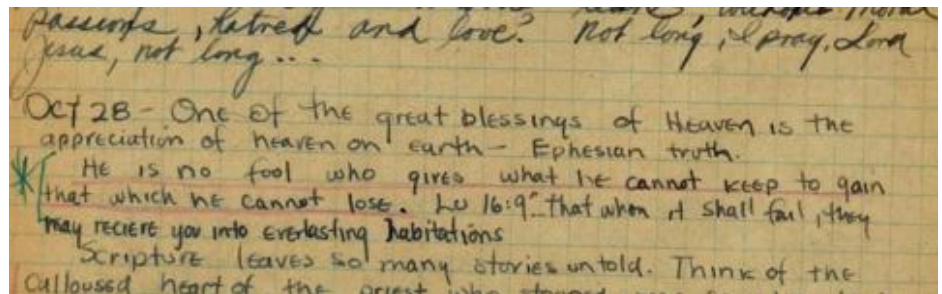 passions, hatred and love? Not long, I pray, Lord
Jesus, not long...
Oct 28 - One of the great blessings of Heaven is the
appreciation of heaven on earth - Ephesian truth.
He is no fool who gives what he cannot keep to gain
that which he cannot lose. Lu 16:9 "that when it shall fail, they
may reciere you into everlasting habitations
Scripture leaves so many stories untold. Think of the
calloused heart of the priest who